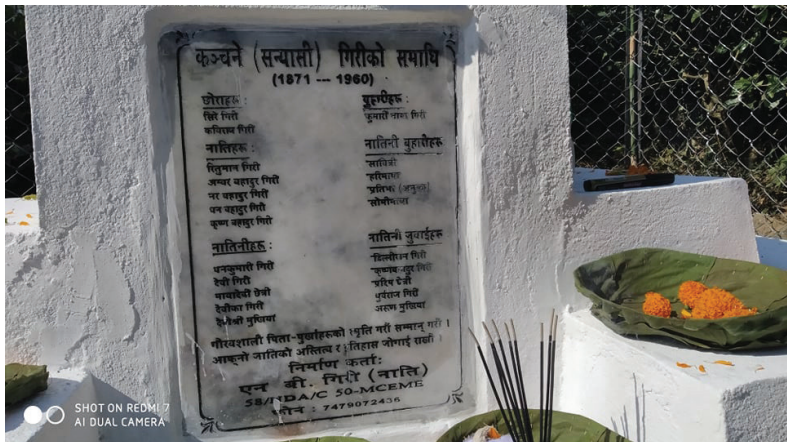 कञ्चने (सन्यासी) गिरीको समाधि
(1871 --- 1960)
छोराहरू :
गिरी
कविराज गिरी
नातिहरू :
रितुमान गिरी
अम्वर बहादुर गिरी
नर बहादुर गिरी
धन बहादुर गिरी
कृष्ण बहादुर गिरी
नातिनीहरू :
धनकुमारी गिरी
देवी गिरी
मायादेवी छेत्री
देवीका गिरी
मुखिया
बुहारीहरू :
कुमारी माया गिरी
नातिनी बुहारीहरू
सावित्री
हरिमाया
प्रतिभा
सोमीमाया
नातिनी जुवाईहरू
गिरी
कृष्णबहादुर गिरी
प्रदिप छेत्री
धुर्पराज गिरी
अरूण मुखिया
गौरवशाली पिता-पुर्खाहरूको स्मृति गरी सम्मान गरौं ।
आफ्नो जातिको अस्तित्व र इतिहास जोगाई राखौं ।
निर्माण कर्ता:
एन बी. गिरी (नाति)
58/NDA/C 50-MCEME
फोन : 7479072436
SHOT ON REDMI 7
AI DUAL CAMERA